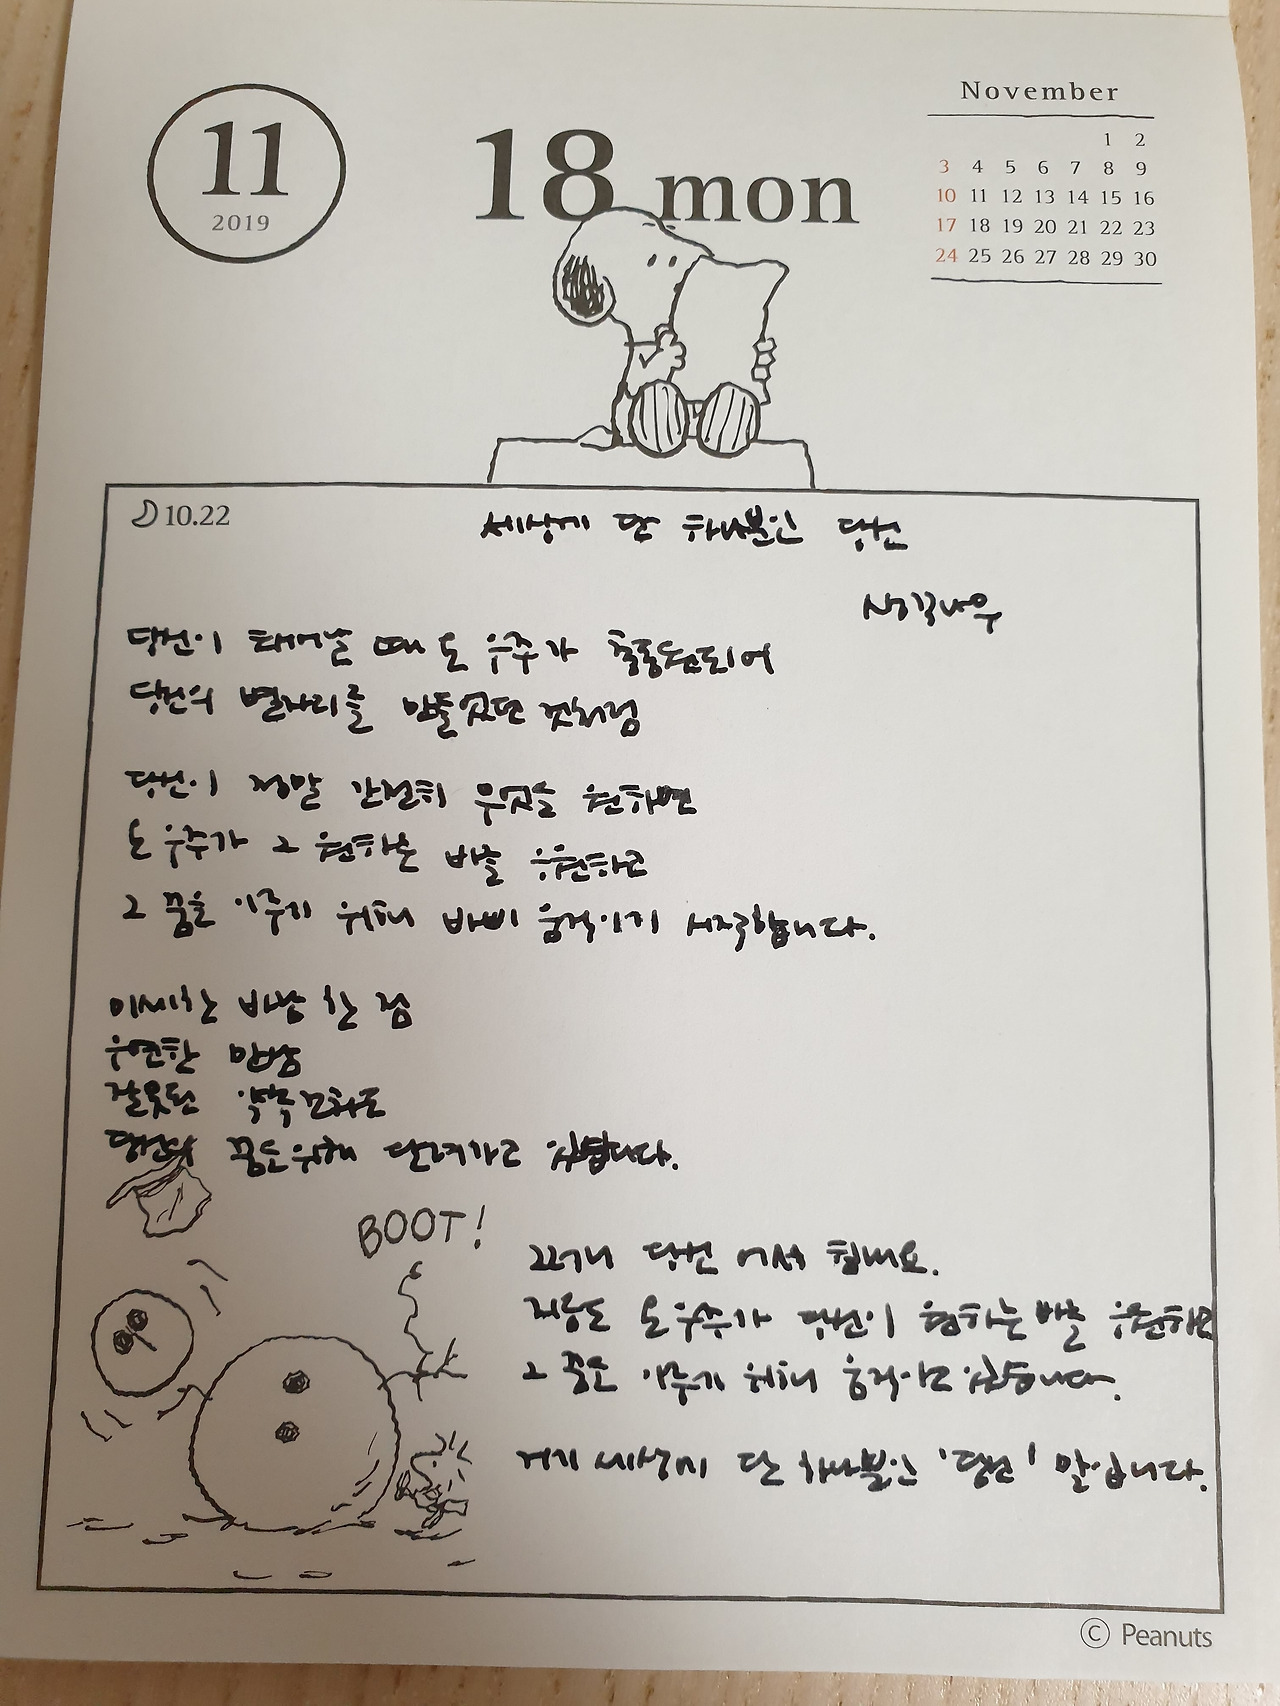 11
2019
18 mon
November
1 2
3 4 5 6 7 8 9
10 11 12 13 14 15 16
17 18 19 20 21 22 23
24 25 26 27 28 29 30
10.22
세상에 단 하나뿐인 당신
당신이 태어날 때 온 우주가 총동원되어
당신의 별자리를 만들었던 것처럼
당신이 정말 간절히 무엇을 원하면
온 우주가 그 원하는 바를 응원하고
그 꿈을 이루기 위해 바삐 움직이기 시작합니다.
미세한 바람 한 점
우연한 만남
잘못된 약속 조차도
당신의 꿈을 위해 달려가고 있습니다.
BOOT!
그러니 당신 어서 힘내요.
지금도 온 우주가 당신이 원하는 바를 응원하고
그 꿈을 이루기 위해 움직이고 있습니다.
거기 세상에 단 하나뿐인 '당신' 말입니다.
© Peanuts